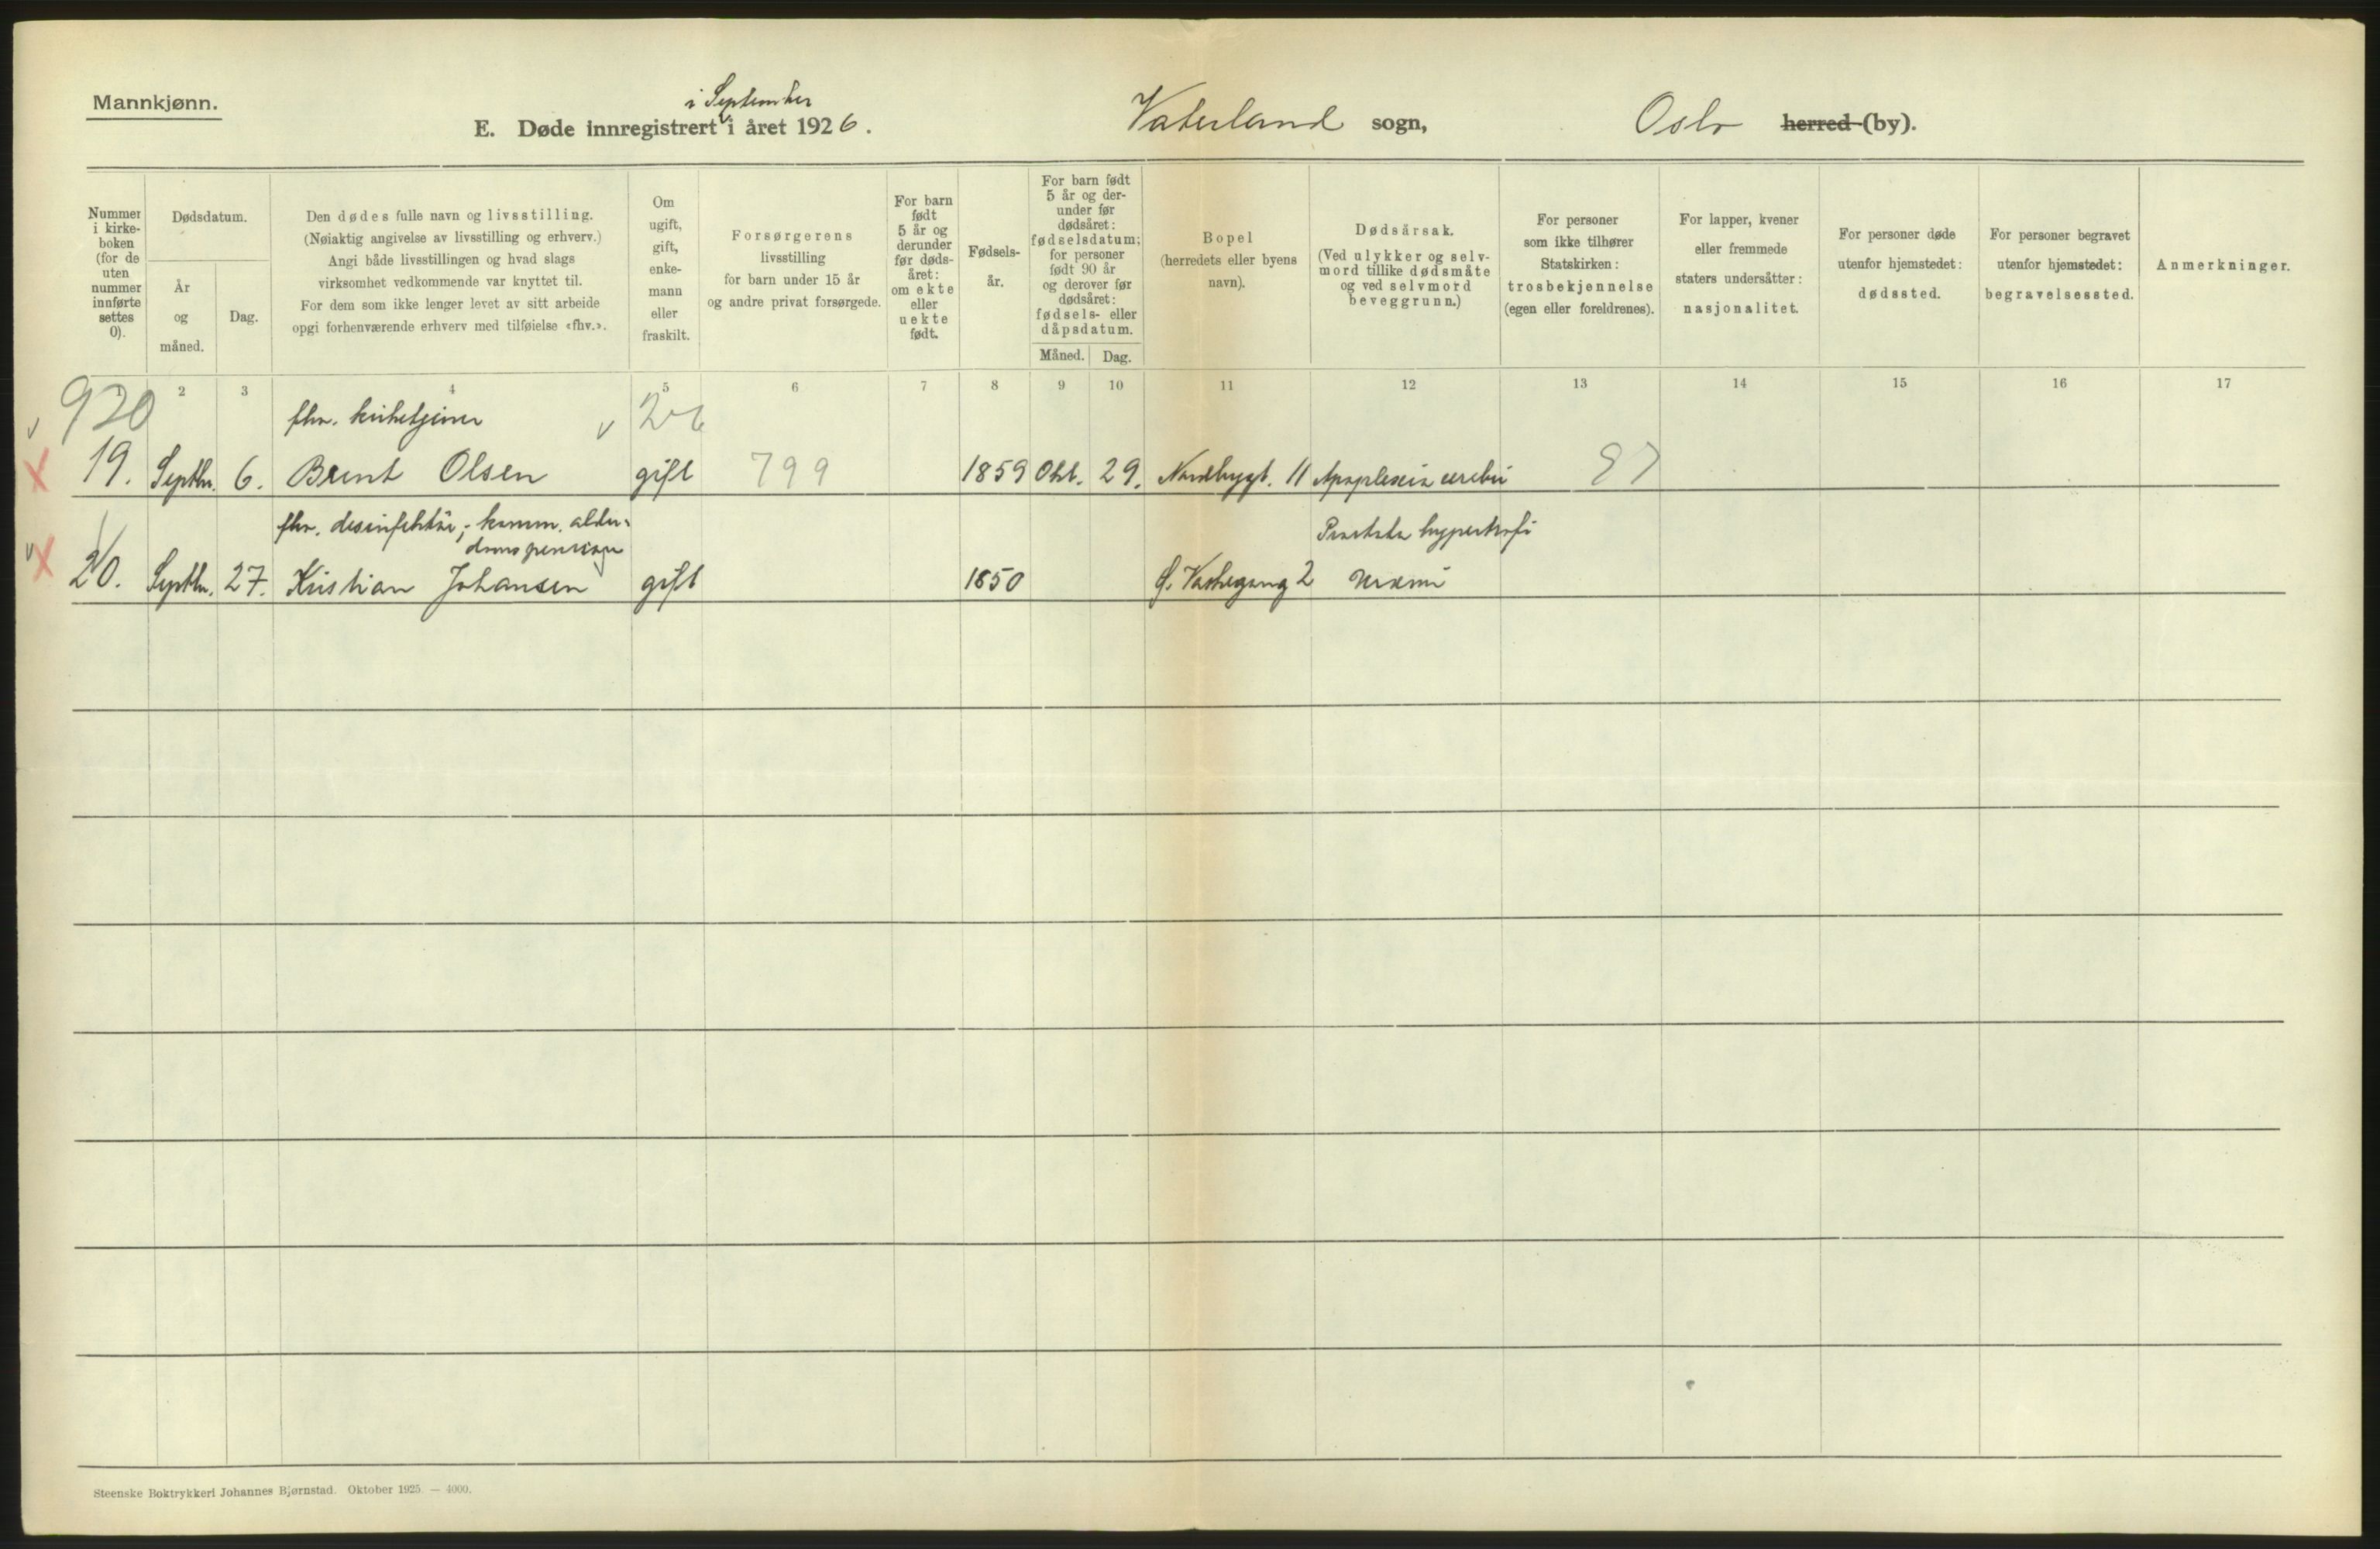 Mannkjønn.
i September
E. Døde innregistrert i året 1926.
Vaterland sogn,
Oslo herred (by).
Nummer i kirke- boken (for de uten nummer innførte settes 0).
Dødsdatum.
År og måned.
Dag.
Den dødes fulle navn og livsstilling.
(Nøiaktig angivelse av livsstilling og erhverv.)
Angi både livsstillingen og hvad slags
virksomhet vedkommende var knyttet til.
For dem som ikke lenger levet av sitt arbeide
opgi forhenværende erhverv med tilføielse «fhv.».
Om ugift, gift, enke- mann eller fraskilt.
Forsørgerens
livsstilling
for barn under 15 år
og andre privat forsørgede.
For barn født 5 år og derunder før døds- året: om ekte eller uekte født.
Fødsels- år.
For barn født 5 år og der- under før dødsåret: fødselsdatum; for personer født 90 år og derover før dødsåret: fødsels- eller dåpsdatum.
Måned. Dag.
Bopel
(herredets eller byens
navn).
Dødsårsak.
(Ved ulykker og selv-
mord tillike dødsmåte
og ved selvmord
beveggrunn.)
For personer
som ikke tilhører
Statskirken:
trosbekjennelse
(egen eller foreldrenes).
For lapper, kvener
eller fremmede
staters undersåtter:
nasjonalitet.
For personer døde
utenfor hjemstedet:
dødssted.
For personer begravet
utenfor hjemstedet:
begravelsessted.
Anmerkninger.
2 3 4 5 6 7 8 9 10 11 12 13 14 15 16 17
920
fhv. kirketjener
19. Septbr. 6. Bernt Olsen gift 799 1859 Okt. 29. Nordbygt. 11 Apoplexia cerebri 97
fhv. desinfektør, komm. alder-
domspensjon
Prostata hypertrofi
20. Septbr. 27. Kristian Johansen gift 1850 S. Vaskegang 2 Uræmi
Steenske Boktrykkeri Johannes Bjørnstad. Oktober 1925. — 4000.